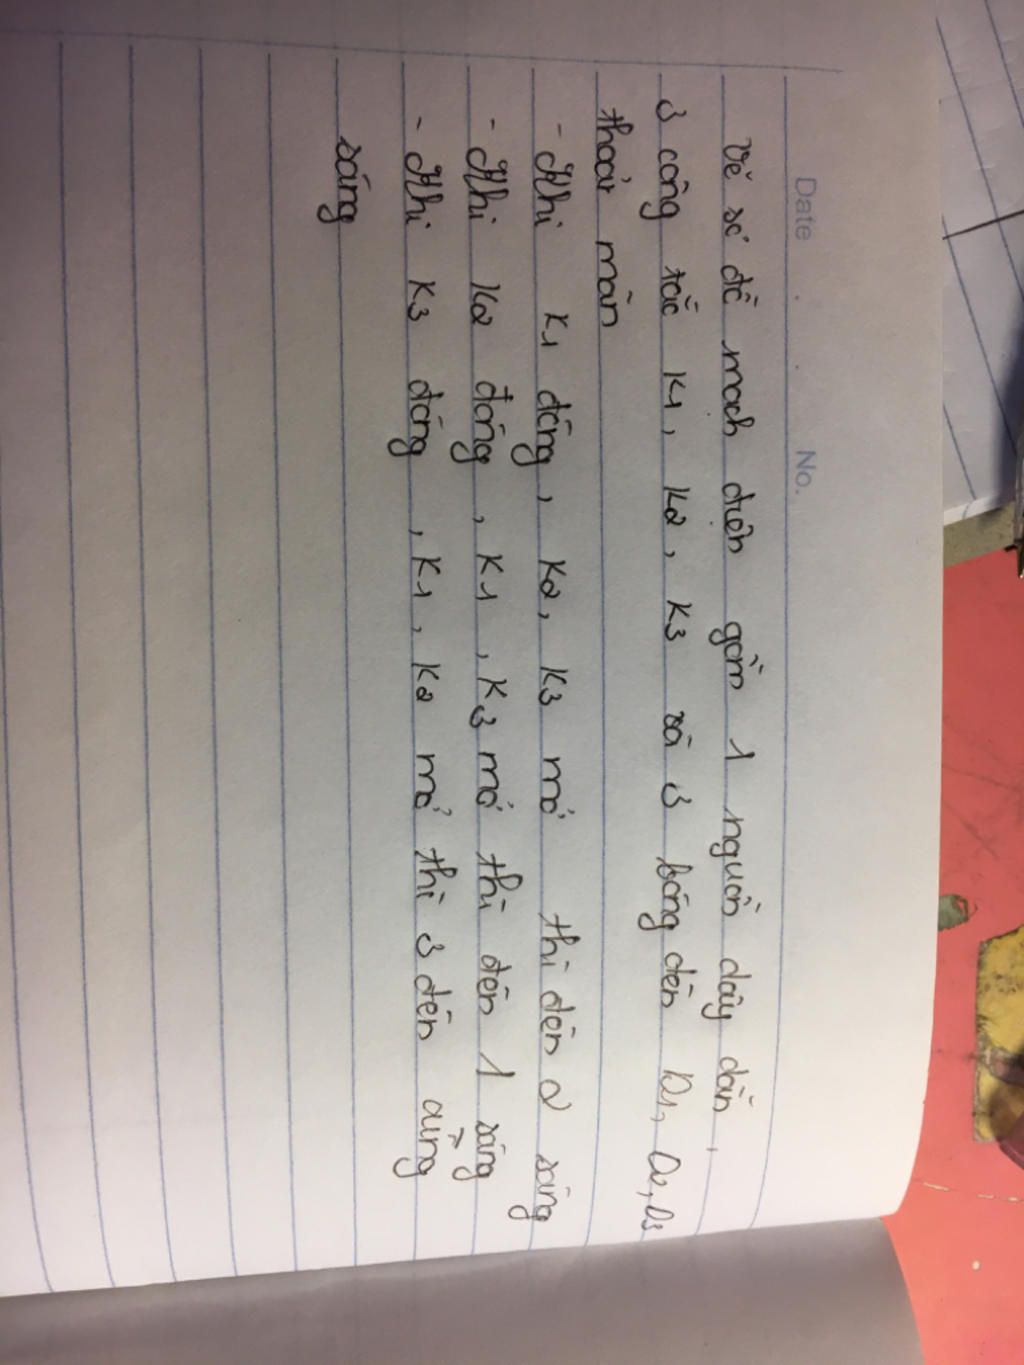 Date No.
Vẽ sơ đồ mạch điện gồm 1 nguồn dây dẫn,
3 công tắc K1, K2, K3 và 3 bóng đèn Đ1, Đ2, Đ3
thoả mãn
- Khi K1 đóng, K2, K3 mở thì đèn 2 sáng
- Khi K2 đóng, K1, K3 mở thì đèn 1 sáng
- Khi K3 đóng, K1, K2 mở thì 3 đèn cùng
sáng